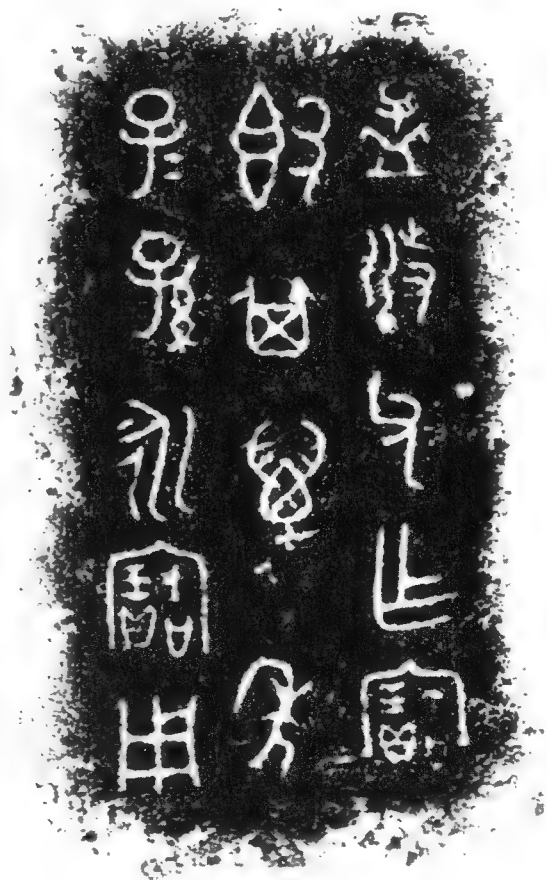 父乍寶
𣪘其萬年
子=孫永寶用